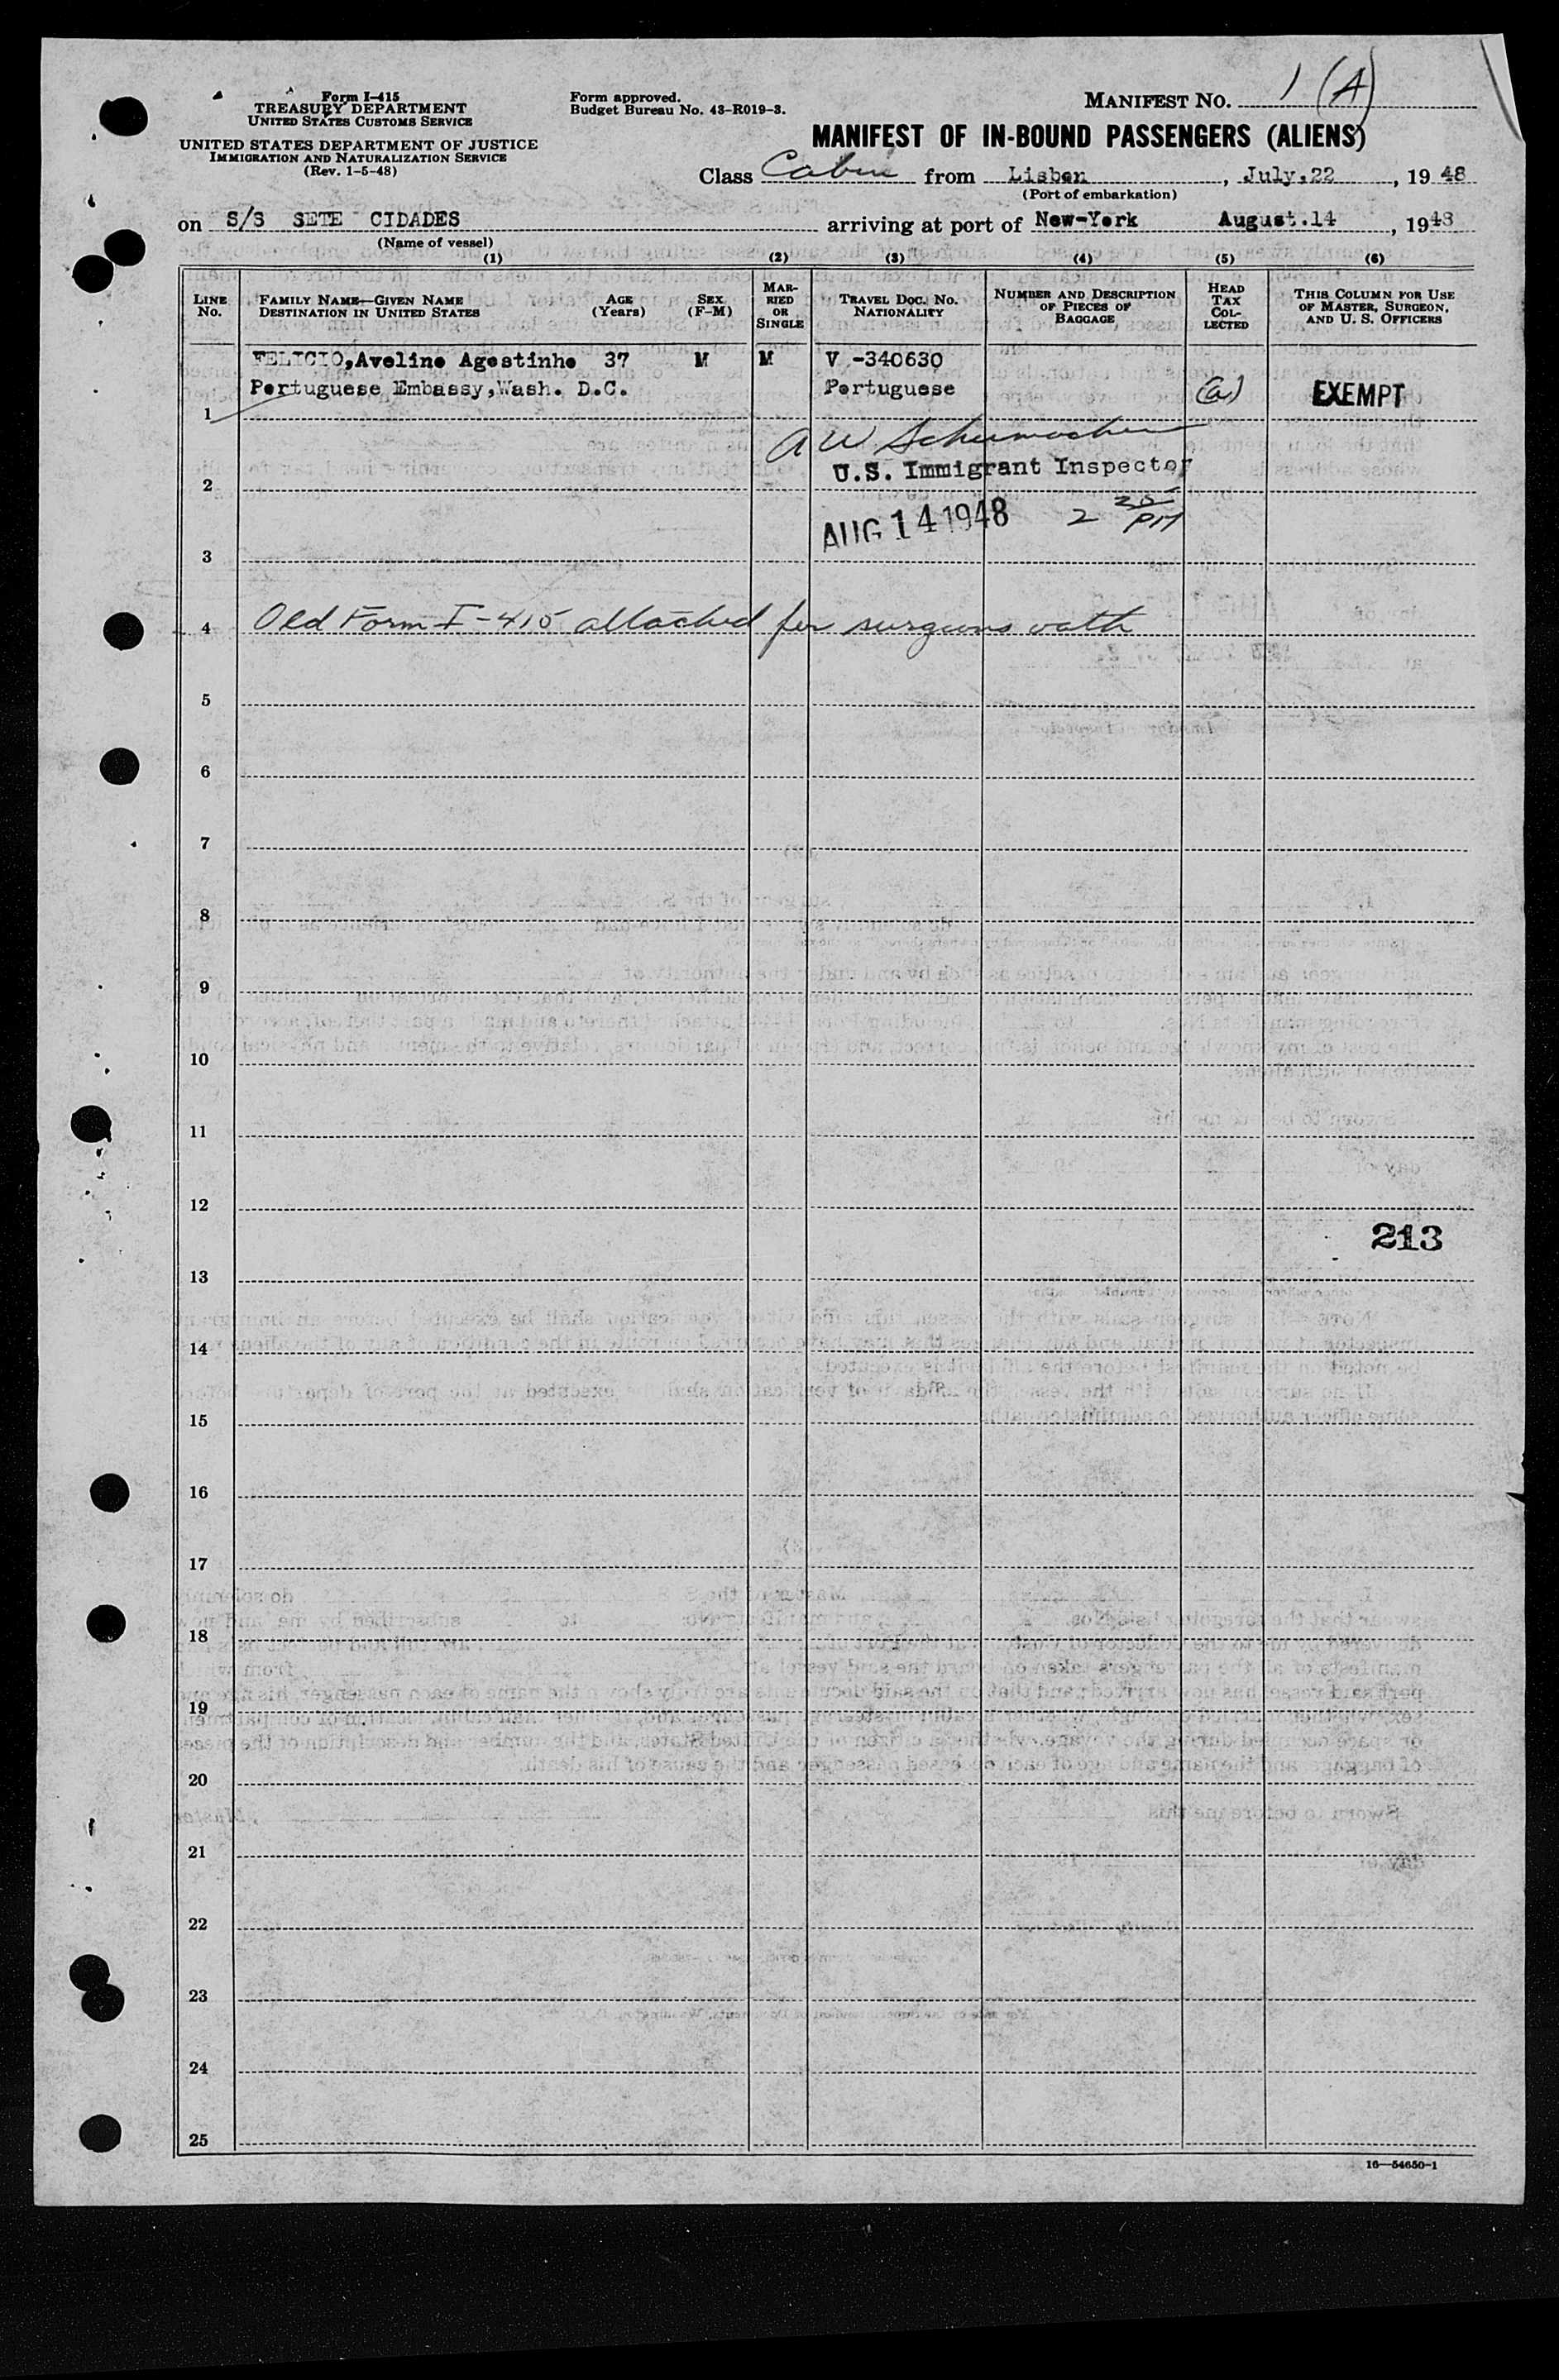 Form I-415
TREASURY DEPARTMENT
UNITED STATES CUSTOMS SERVICE
UNITED STATES DEPARTMENT OF JUSTICE
IMMIGRATION AND NATURALIZATION SERVICE
(Rev. 1-5-48)
Form approved.
Budget Bureau No. 43-R019-3.
MANIFEST NO. 1 (A)
MANIFEST OF IN-BOUND PASSENGERS (ALIENS)
Class Cabin from Lisbon, July.22, 1948
(Port of embarkation)
on S/S SETE CIDADES arriving at port of New-York August.14, 1948
(Name of vessel)
(1) (2) (3) (4) (5) (6)
LINE No.
FAMILY NAME—GIVEN NAME
DESTINATION IN UNITED STATES
AGE (Years)
SEX (F-M)
MARRIED OR SINGLE
TRAVEL DOC. NO.
NATIONALITY
NUMBER AND DESCRIPTION OF PIECES OF BAGGAGE
HEAD TAX COLLECTED
THIS COLUMN FOR USE OF MASTER, SURGEON, AND U. S. OFFICERS
FELICIO,Avelino Agostinho 37 M M V -340630
Portuguese Embassy,Wash. D.C. Portuguese (a) EXEMPT
1
A W Schumacher
U.S. Immigrant Inspector
2
AUG 14 1948 2 PM
3
Old Form I-415 attached for surgeons oath
4
5
6
7
8
9
10
11
12
213
13
14
15
16
17
18
19
20
21
22
23
24
25
16—54650-1